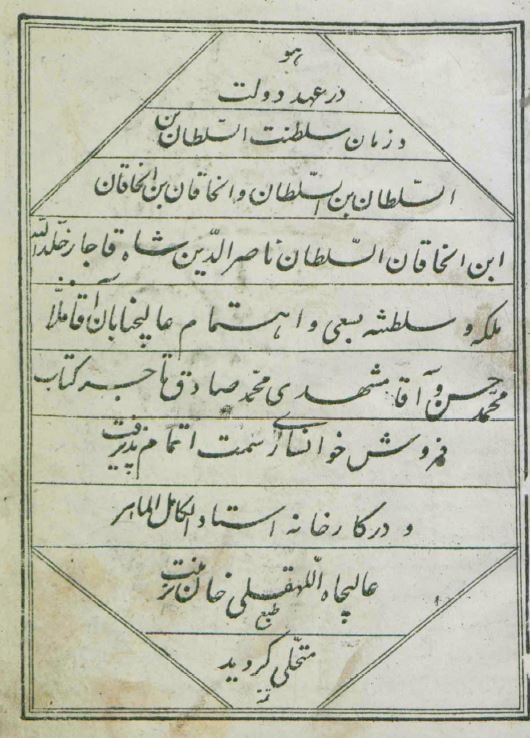 هو
در عهد دولت
و زمان سلطنت السّلطان بن
السّلطان بن السّلطان والخاقان بن الخاقان
ابن الخاقان السّلطان ناصرالدّین شاه قاجار خلّد الله
ملکه و سلطنته بسعی و اهتمام عالیجنابان آقا ملّا
محمد حسن و آقا مشهدی محمد صادق تاجر کتاب
فروش خوانساری سمت اتمام پذیرفت
و در کارخانه استاد الکامل الماهر
عالیجاه اللّهقلی خان زینت
طبع
متحلّی گردید